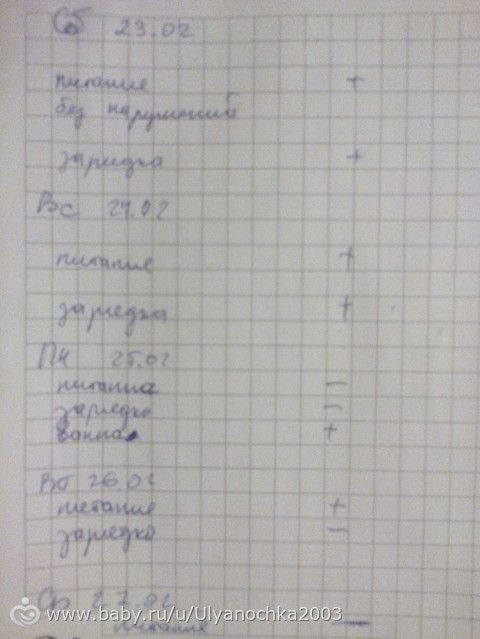 Сб 23.02
питание +
без нарушений
зарядка +
Вс 24.02
питание +
зарядка +
Пн 25.02
питание –
зарядка –
ванна +
Вт 26.02
питание +
зарядка –
Ср 27.02
питание –
www.baby.ru/u/Ulyanochka2003